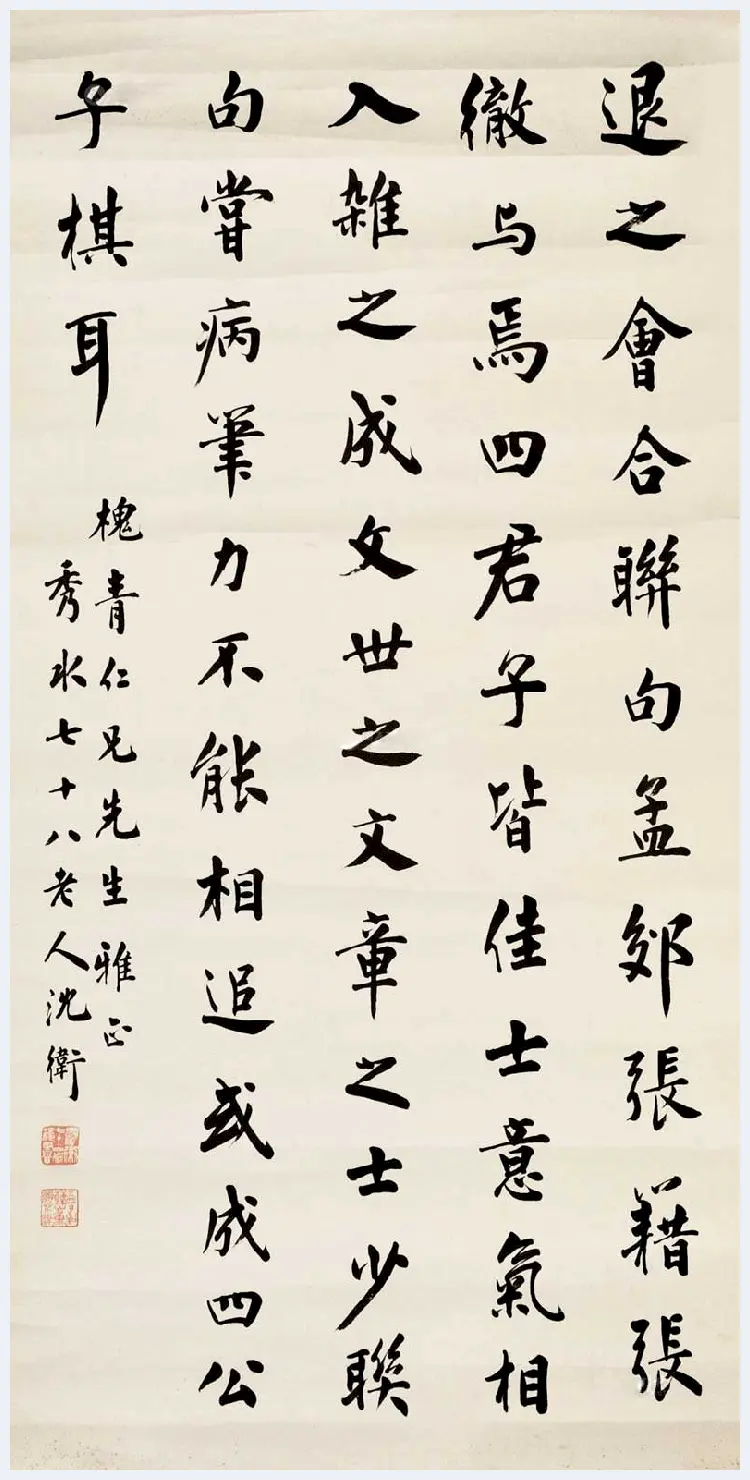 退之會合聯句孟郊張籍張
徹与焉四君子皆佳士意氣相
入雜之成文世之文章之士少聯
句嘗病筆力不能相追或成四公
子棋耳
槐青仁兄先生雅正
秀水七十八老人沈衛